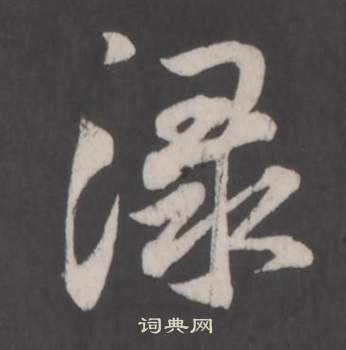 渌
词典网